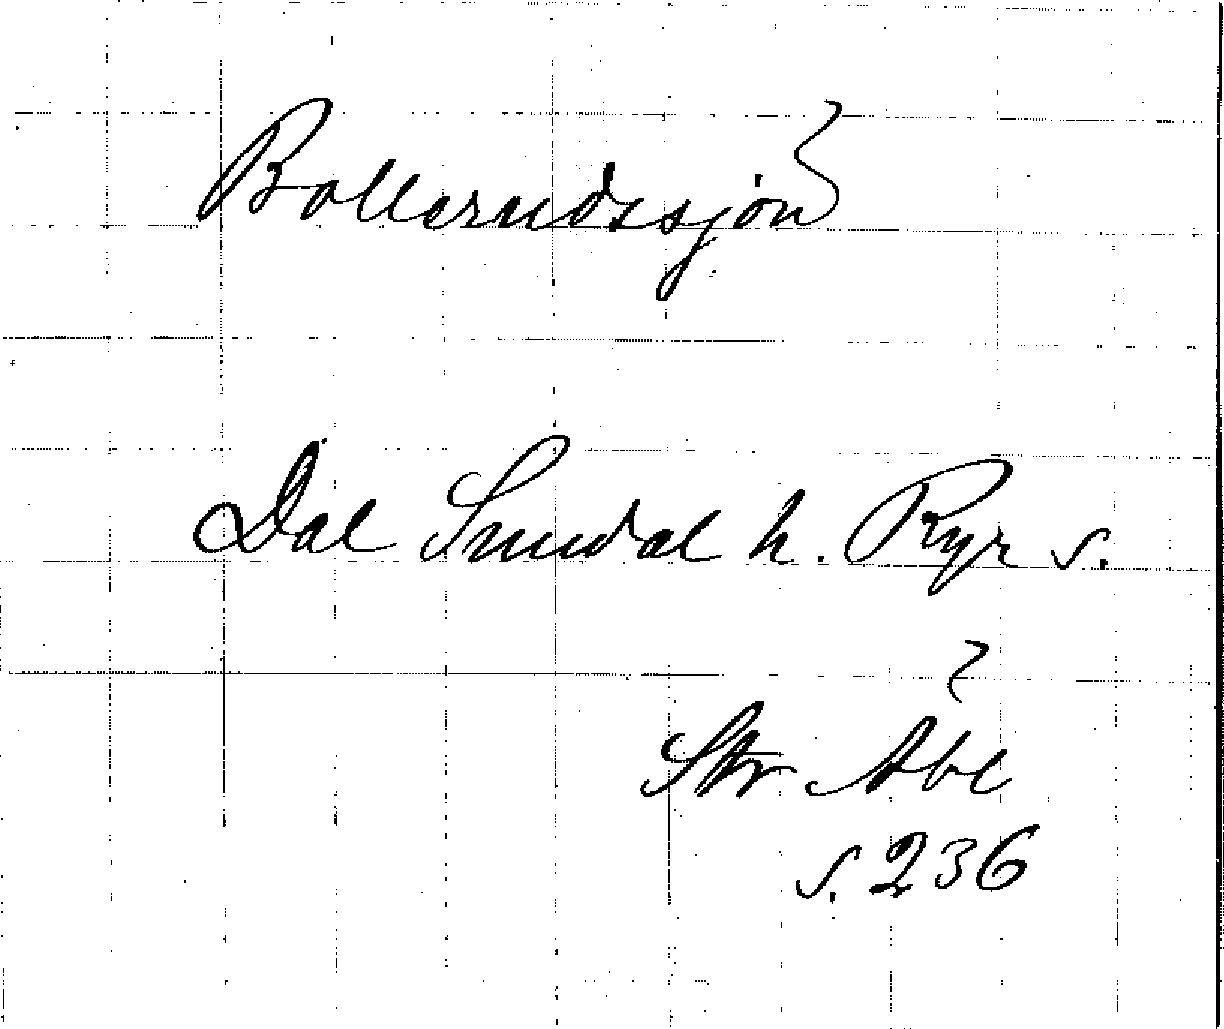 Bollerudssjön
Dal Sundal h. Ryr s.
Str Åbe
s. 236